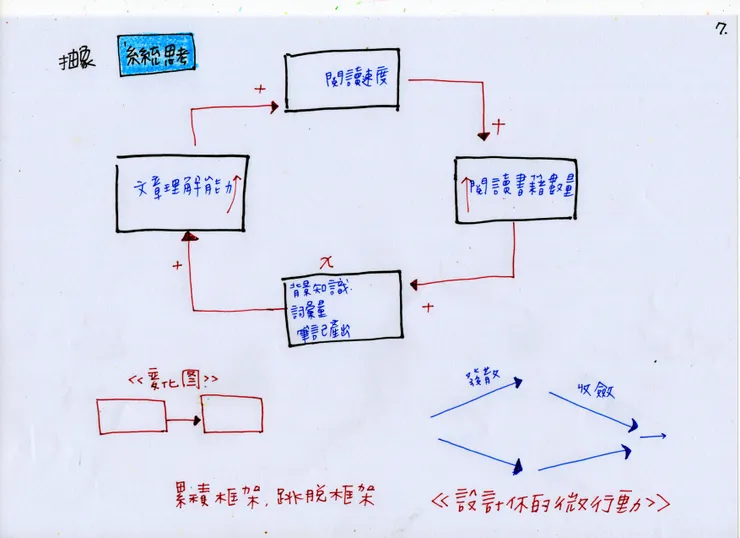 7.
抽象 系統思考
閱讀速度
+
+
文章理解能力
閱讀書籍數量
x
背景知識.
詞彙量
筆記產出
+
+
<<變化图>>
發散
收斂
累積框架,跳脫框架
<<設計你的微行動>>